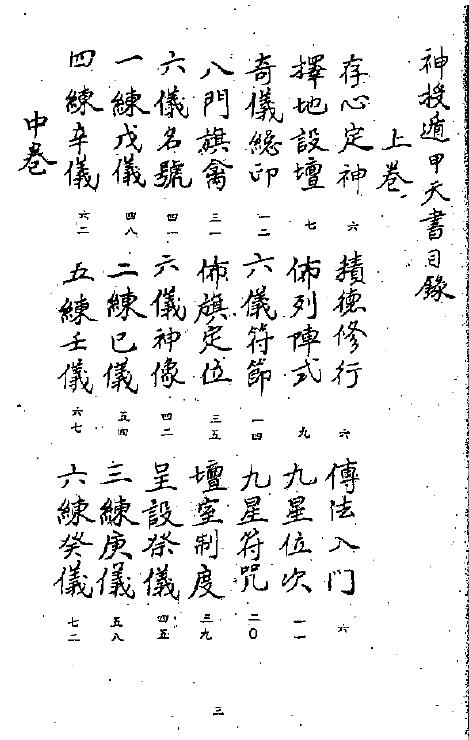 神授遁甲天書目錄
上卷
存心定神 六 積德修行 六 傳法入门 六
擇地設壇 七 佈列陣式 九 九星位次 一一
奇儀總印 一二 六儀符節 一四 九星符咒 二〇
八門旗禽 三一 佈旗定位 三五 壇室制度 三九
六儀名號 四一 六儀神像 四二 呈設祭儀 四五
一練戊儀 四八 二練已儀 五四 三練庚儀 五八
四練辛儀 六二 五練壬儀 六七 六練癸儀 七二
中卷
三